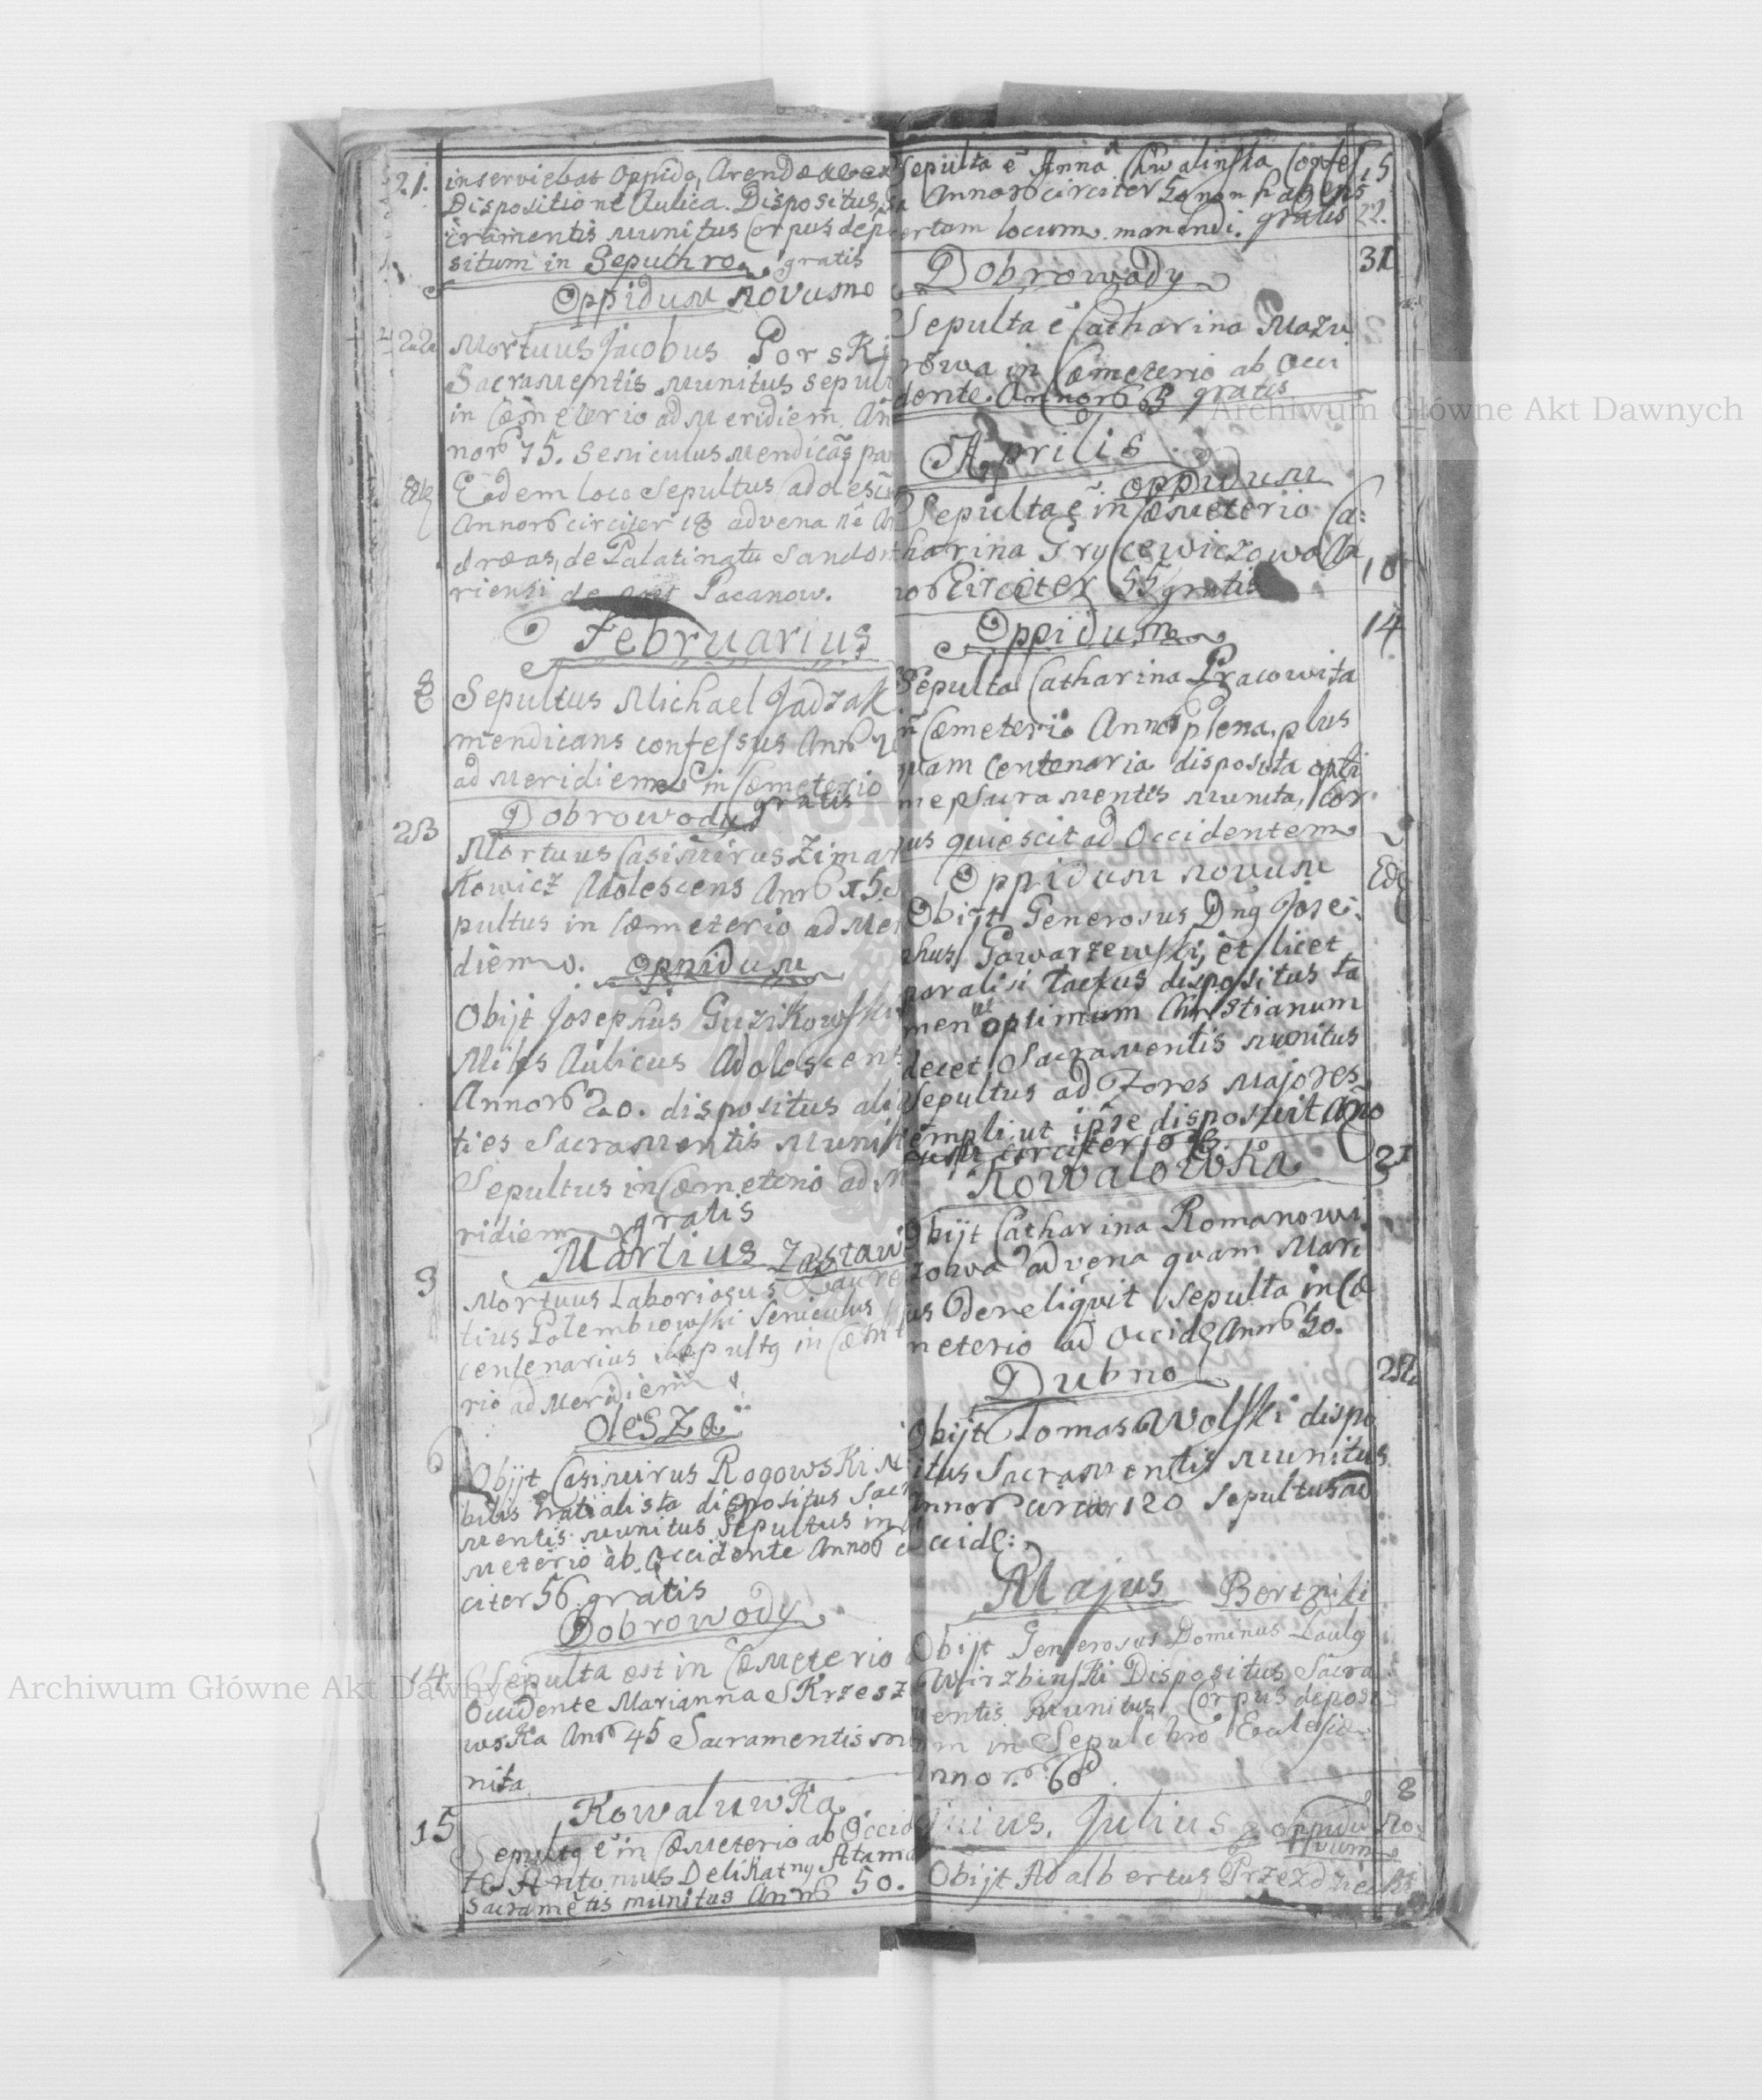 21. inserviebat Oppido, Arendae
Dispositione Aulica. Dispositus, Sa
cramentis munitus Corpus depo
situm in Sepulchro, gratis
Oppidum novum
22 Mortuus Jacobus Porski
Sacramentis munitus sepul
in Cæmeterio ad Meridiem An
nor 75. Seniculus Mendicãs
Eodem loco Sepultus adolescẽ
Annor circiter 18 advena nẽ An
dræas, de Palatinatu Sandomi
riensi de Pacanow.
Februarius
8 Sepultus Michael Jadzak
mendicans confessus Annor
ad Meridiem in Cæmeterio
gratis
Dobrowody
23 Mortuus Casimirus Zimar
Kowicz Adolescens Annor 15
pultus in Cæmeterio ad Mer
diem. Oppidum
Obijt Josephus Guzikowski
Miles Aulicus Adolescens
Annor 20. dispositus ali
ties Sacramentis Munit
Sepultus in Cæmeterio ad M
ridiem gratis
Martius Zastaw
3 Mortuus Laboriosus Laure
tius Golembiowski Seniculus
centenarius Sepultg in Cæm
rio ad Meridiem
Olesza
6 Obijt Casimirus Rogowski N
bilis Gratialista dispositus Sacr
mentis munitus Sepultus in
meterio ab Occidente Annor
citer 56. gratis
Dobrowody
14 Sepulta est in Cæmeterio
Occidente Marianna Skrzesz
wska Annor 45 Sacramentis mu
nita
Kowaluwka
15 Sepultg ẽ in Cæmeterio ab Occid
te Antonius Delikatny Atama
Sacramẽtis munitus Annor 50.
Sepulta ẽ Anna Chwalinska Confes 15
Annor circiter 50 non habens
ertam locum manendi. gratis 22.
Dobrowody 31
Sepulta ẽ Catharina Mazu
rowa in Cæmeterio ab Occi
dente. Annor gratis
Aprilis
Oppidum
Sepulta ẽ in Cæmeterio Ca:
tharina Grycewiczowa An
nor Circiter 55 gratis 10
Oppidum 14
Sepulta Catharina Pracowita
in Cæmeterio Annor plena, plus
quam Centenaria disposita opti
me Sacramentis munita, Cor
pus quiescit ad Occidentem
Oppidum novum
Obijt Generosus Dng Jose:
phus Gowarzewski, et licet
paralisi tactus dispositus ta
men ut optimum Christianum
decet Sacramentis munitus
Sepultus ad Fores Majores
templi ut ipse disposuit
circiter
Kowalowka 21
Obijt Catharina Romanowi
zowa advena quam Mari
us dereliquit Sepulta in Cæ
meterio ad Occid Annor 50.
Dubno
Obijt Tomas Wolski dispo
situs Sacramentis munitus
Annor circiter 120 Sepultus ad
Occide:
Majus Bertniki
Obijt Generosus Dominus Paulg
Wirzbinski Dispositus Sacra
mentis Munitus, Corpus deposi
tum in Sepulchro Ecclesiæ
Annor. 60
Junius. Julius. Oppidũ No 8
vum
Obijt Adalbertus Przezdziecki
Archiwum Główne Akt Dawnych
Archiwum Główne Akt Dawnych